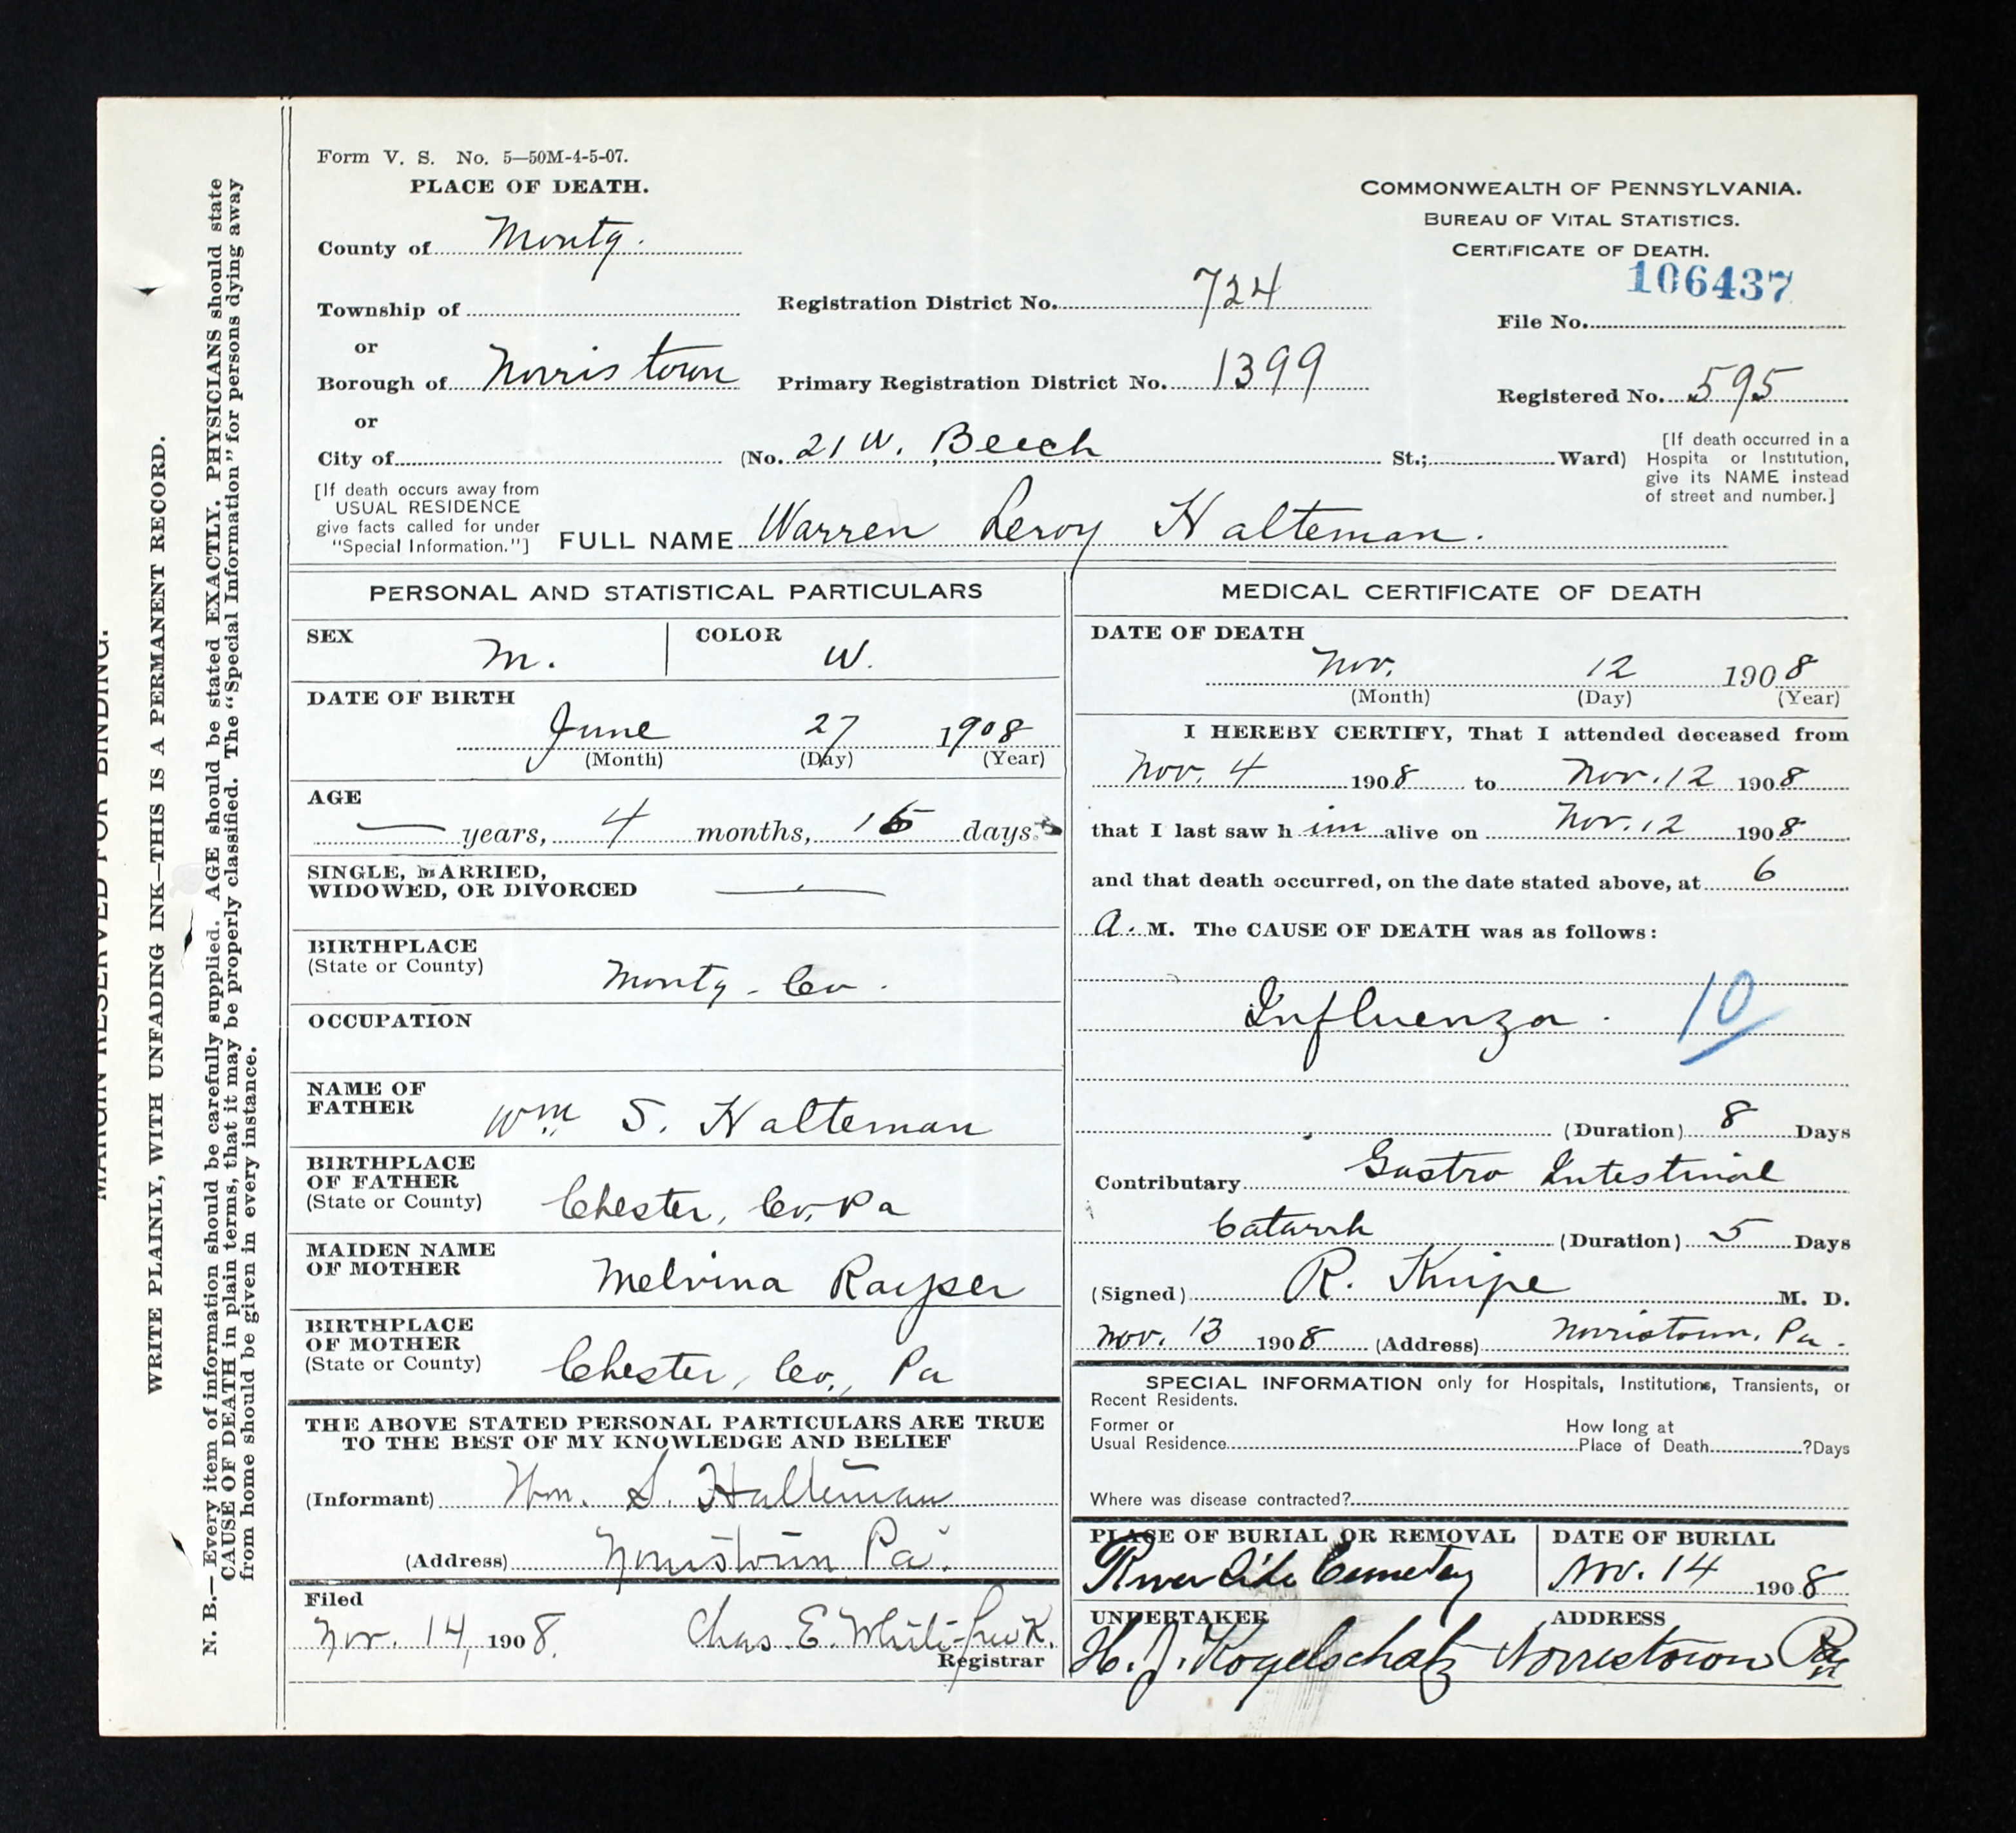 Form V. S. No. 5—50M-4-5-07.
PLACE OF DEATH.
County of Montg.
Township of
or
Borough of Norristown
or
City of
COMMONWEALTH OF PENNSYLVANIA.
BUREAU OF VITAL STATISTICS.
CERTIFICATE OF DEATH.
106437
Registration District No. 724
File No.
Primary Registration District No. 1399
Registered No. 595
(No. 21 W. Beech St.; Ward)
[If death occurred in a
Hospita or Institution,
give its NAME instead
of street and number.]
[If death occurs away from
USUAL RESIDENCE
give facts called for under
"Special Information."]
FULL NAME Warren Leroy Halteman.
PERSONAL AND STATISTICAL PARTICULARS
SEX M.
COLOR W.
DATE OF BIRTH
June 27 1908
(Month) (Day) (Year)
AGE
— years, 4 months, 15 days
SINGLE, MARRIED,
WIDOWED, OR DIVORCED —
BIRTHPLACE
(State or County) Montg. Co.
OCCUPATION
NAME OF
FATHER Wm S. Halteman
BIRTHPLACE
OF FATHER
(State or County) Chester, Co, Pa
MAIDEN NAME
OF MOTHER Melvina
BIRTHPLACE
OF MOTHER
(State or County) Chester, Co., Pa
THE ABOVE STATED PERSONAL PARTICULARS ARE TRUE
TO THE BEST OF MY KNOWLEDGE AND BELIEF
(Informant) Wm. S. Halteman
(Address) Norristown Pa.
Filed
Nov. 14, 1908. Chas. E. White
Registrar
MEDICAL CERTIFICATE OF DEATH
DATE OF DEATH
Nov. 12 1908
(Month) (Day) (Year)
I HEREBY CERTIFY, That I attended deceased from
Nov. 4 1908 to Nov. 12 1908
that I last saw h im alive on Nov. 12 1908
and that death occurred, on the date stated above, at 6
A. M. The CAUSE OF DEATH was as follows:
Influenza. 10
(Duration) 8 Days
Contributary Gastro Intestinal
Catarrh (Duration) 5 Days
(Signed) R. Knipe M. D.
Nov. 13 1908 (Address) Norristown, Pa.
SPECIAL INFORMATION only for Hospitals, Institutions, Transients, or
Recent Residents.
Former or
Usual Residence
How long at
Place of Death ?Days
Where was disease contracted?
PLACE OF BURIAL OR REMOVAL
Riverside Cemetery
DATE OF BURIAL
Nov. 14 1908
UNDERTAKER
H. J. Kogelschatz
ADDRESS
Norristown Pa
MARGIN RESERVED FOR BINDING.
WRITE PLAINLY, WITH UNFADING INK—THIS IS A PERMANENT RECORD.
N. B.—Every item of information should be carefully supplied. AGE should be stated EXACTLY. PHYSICIANS should state
CAUSE OF DEATH in plain terms, that it may be properly classified. The "Special Information" for persons dying away
from home should be given in every instance.